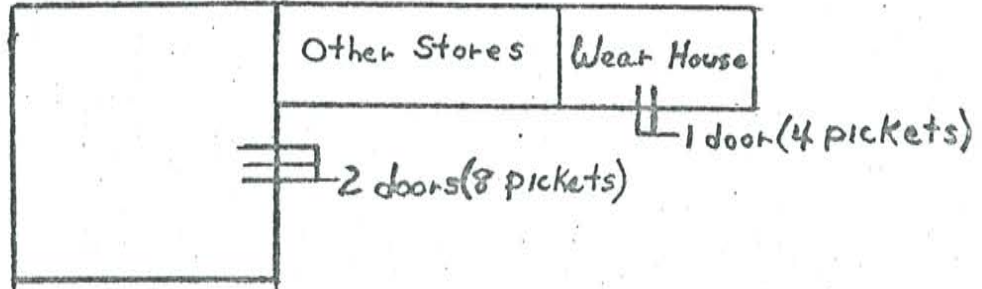 Other Stores
Wear House
1 door(4 pickets)
2 doors(8 pickets)